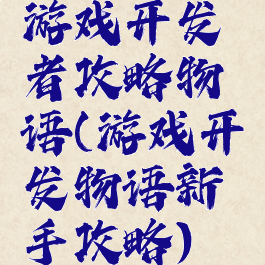 游戏开发
者攻略物
语(游戏开
发物语新
手攻略)